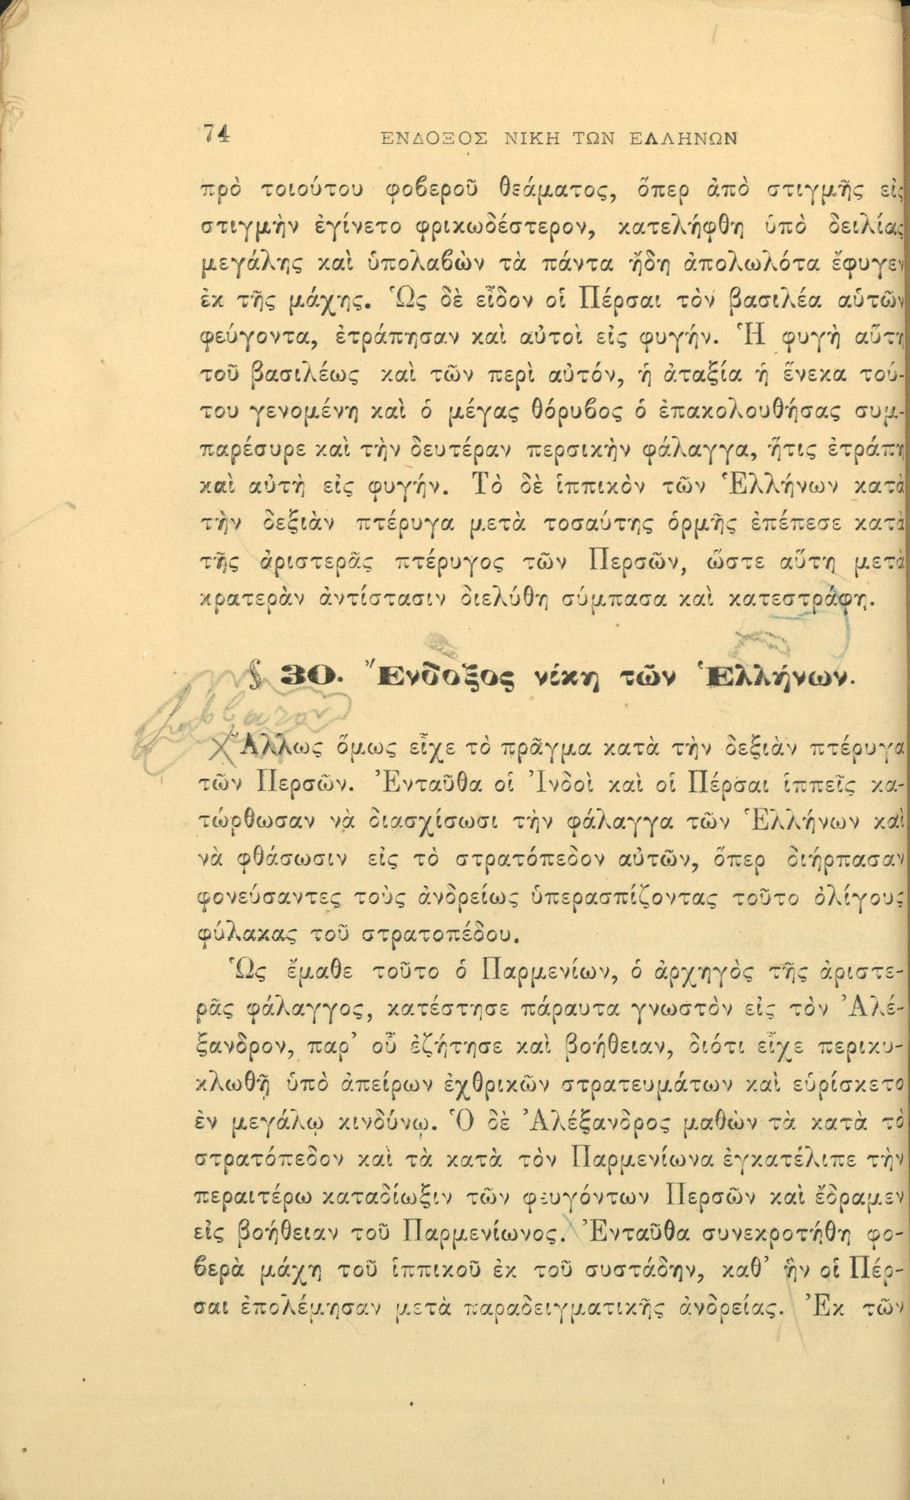 74 ΕΝΔΟΞΟΣ ΝΙΚΗ ΤΩΝ ΕΛΛΗΝΩΝ
πρὸ τοιούτου φοβεροῦ θεάματος, ὅπερ ἀπὸ στιγμῆς εἰς
στιγμὴν ἐγίνετο φρικωδέστερον, κατελήφθη ὑπὸ δειλίας
μεγάλης καὶ ὑπολαβὼν τὰ πάντα ἤδη ἀπολωλότα ἔφυγεν
ἐκ τῆς μάχης. Ὡς δὲ εἶδον οἱ Πέρσαι τὸν βασιλέα αὐτῶν
φεύγοντα, ἐτράπησαν καὶ αὐτοὶ εἰς φυγήν. Ἡ φυγὴ αὕτη
τοῦ βασιλέως καὶ τῶν περὶ αὐτόν, ἡ ἀταξία ἡ ἕνεκα τού-
του γενομένη καὶ ὁ μέγας θόρυβος ὁ ἐπακολουθήσας συμ-
παρέσυρε καὶ τὴν δευτέραν περσικὴν φάλαγγα, ἥτις ἐτράπη
καὶ αὐτὴ εἰς φυγήν. Τὸ δὲ ἱππικὸν τῶν Ἑλλήνων κατὰ
τὴν δεξιὰν πτέρυγα μετὰ τοσαύτης ὁρμῆς ἐπέπεσε κατὰ
τῆς ἀριστερᾶς πτέρυγος τῶν Περσῶν, ὥστε αὕτη μετὰ
κρατερὰν ἀντίστασιν διελύθη σύμπασα καὶ κατεστράφη.
§ 30. Ἔνδοξος νίκη τῶν Ἑλλήνων.
Ἄλλως ὅμως εἶχε τὸ πρᾶγμα κατὰ τὴν δεξιὰν πτέρυγα
τῶν Περσῶν. Ἐνταῦθα οἱ Ἰνδοὶ καὶ οἱ Πέρσαι ἱππεῖς κα-
τώρθωσαν νὰ διασχίσωσι τὴν φάλαγγα τῶν Ἑλλήνων καὶ
νὰ φθάσωσιν εἰς τὸ στρατόπεδον αὐτῶν, ὅπερ διήρπασαν
φονεύσαντες τοὺς ἀνδρείως ὑπερασπίζοντας τοῦτο ὀλίγους
φύλακας τοῦ στρατοπέδου.
Ὡς ἔμαθε τοῦτο ὁ Παρμενίων, ὁ ἀρχηγὸς τῆς ἀριστε-
ρᾶς φάλαγγος, κατέστησε πάραυτα γνωστὸν εἰς τὸν Ἀλέ-
ξανδρον, παρ' οὗ ἐζήτησε καὶ βοήθειαν, διότι εἶχε περικυ-
κλωθῆ ὑπὸ ἀπείρων ἐχθρικῶν στρατευμάτων καὶ εὑρίσκετο
ἐν μεγάλῳ κινδύνῳ. Ὁ δὲ Ἀλέξανδρος μαθὼν τὰ κατὰ τὸ
στρατόπεδον καὶ τὰ κατὰ τὸν Παρμενίωνα ἐγκατέλιπε τὴν
περαιτέρω καταδίωξιν τῶν φευγόντων Περσῶν καὶ ἔδραμεν
εἰς βοήθειαν τοῦ Παρμενίωνος. Ἐνταῦθα συνεκροτήθη φο-
βερὰ μάχη τοῦ ἱππικοῦ ἐκ τοῦ συστάδην, καθ' ἣν οἱ Πέρ-
σαι ἐπολέμησαν μετὰ παραδειγματικῆς ἀνδρείας. Ἐκ τῶν